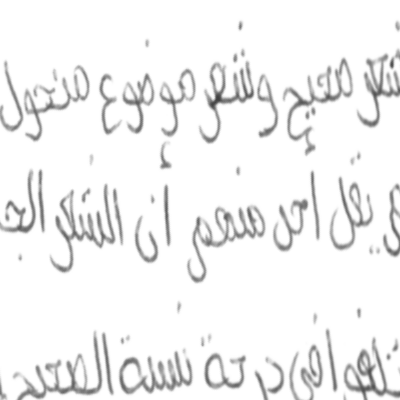 شعر صحيح وشعر موضوع منحول
يقل أحد منهم أن الشعر الجـ
ـتلفوا في درجة نسبة الصحيح